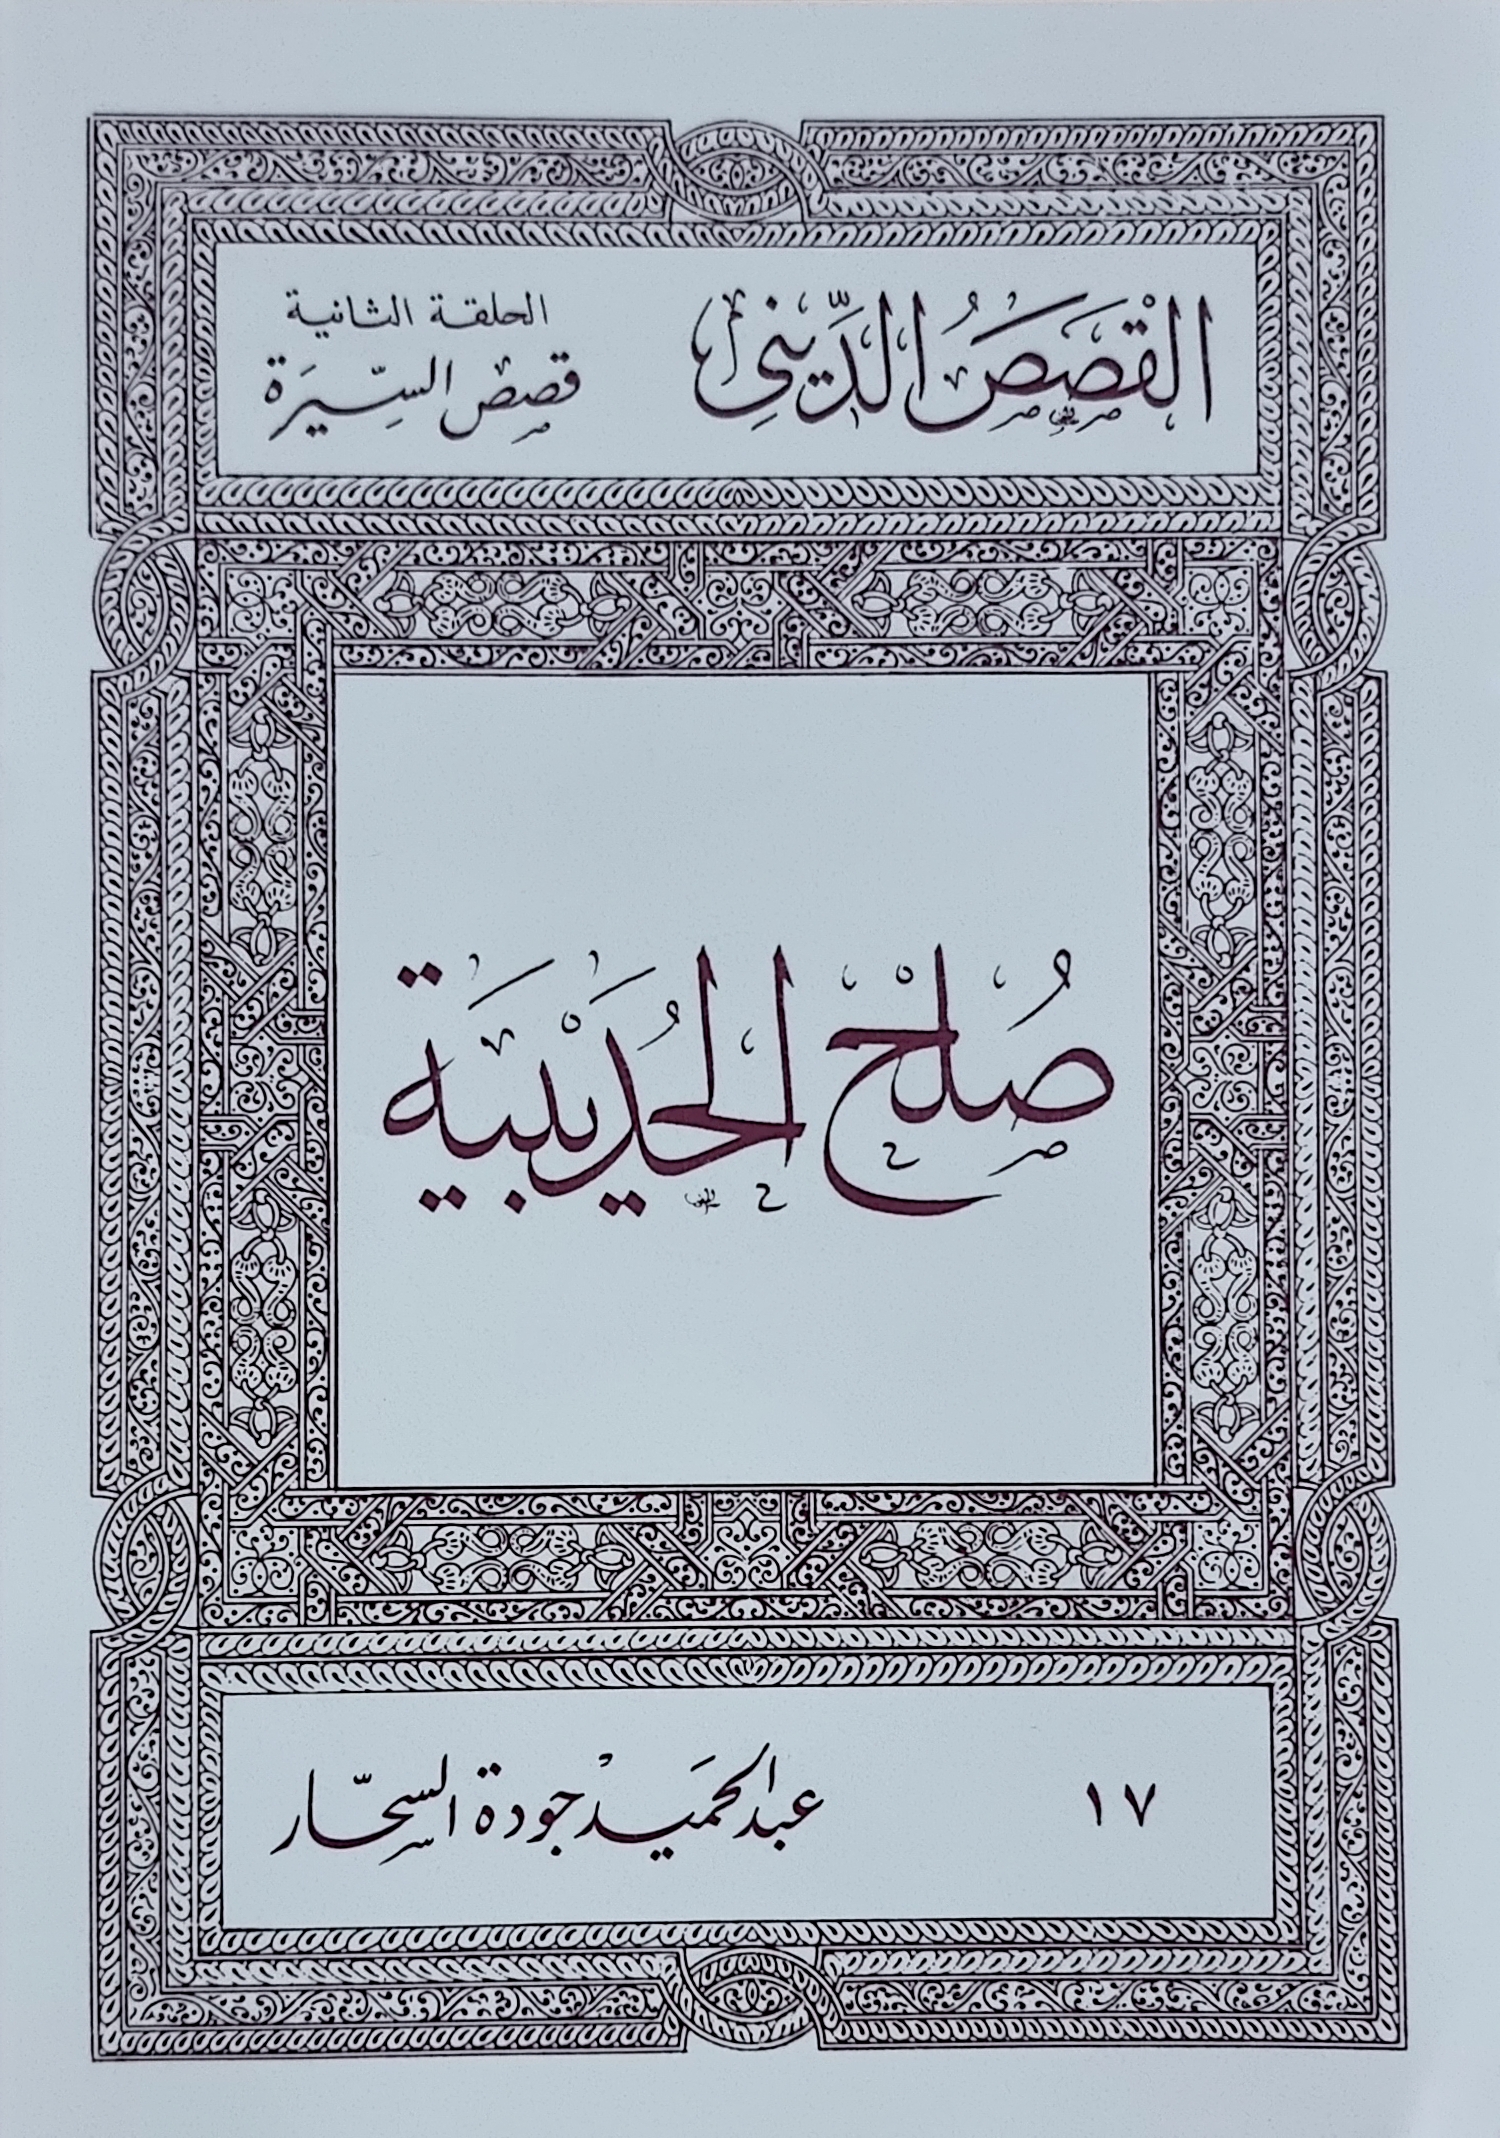 القَصَصُ الدِّينِي
الحلقة الثانية
قصص السِّيرَة
صُلْح الحُدَيْبِيَة
١٧
عبد الحَميد جودة السحّار